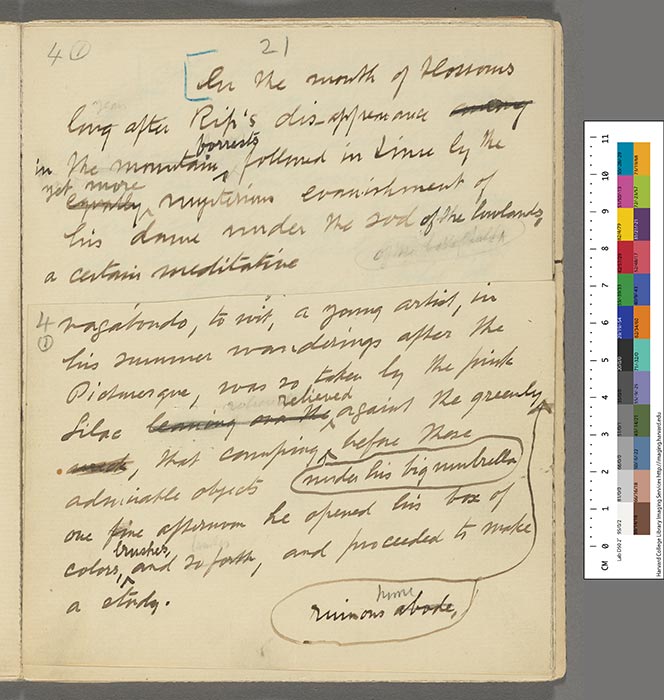 4 ① 21
In the month of blossoms
long after Rip's disappearance among
in the mountain forests, followed in time by the
yet more
equally mysterious evanishment of
his dame under the sod of the lowlands,
a certain meditative
4 ② vagabondo, to wit, a young artist, in
his summer wanderings after the
Picturesque, was so taken by the pink
relieved
Lilac leaning over the against the greenly
, that camping before these
admirable objects under his big umbrella
one fine afternoon he opened his box of
brushes,
colors, and so forth, and proceeded to make
a study.
home
ruinous abode,
CM 0 1 2 3 4 5 6 7 8 9 10 11
Harvard College Library Imaging Services